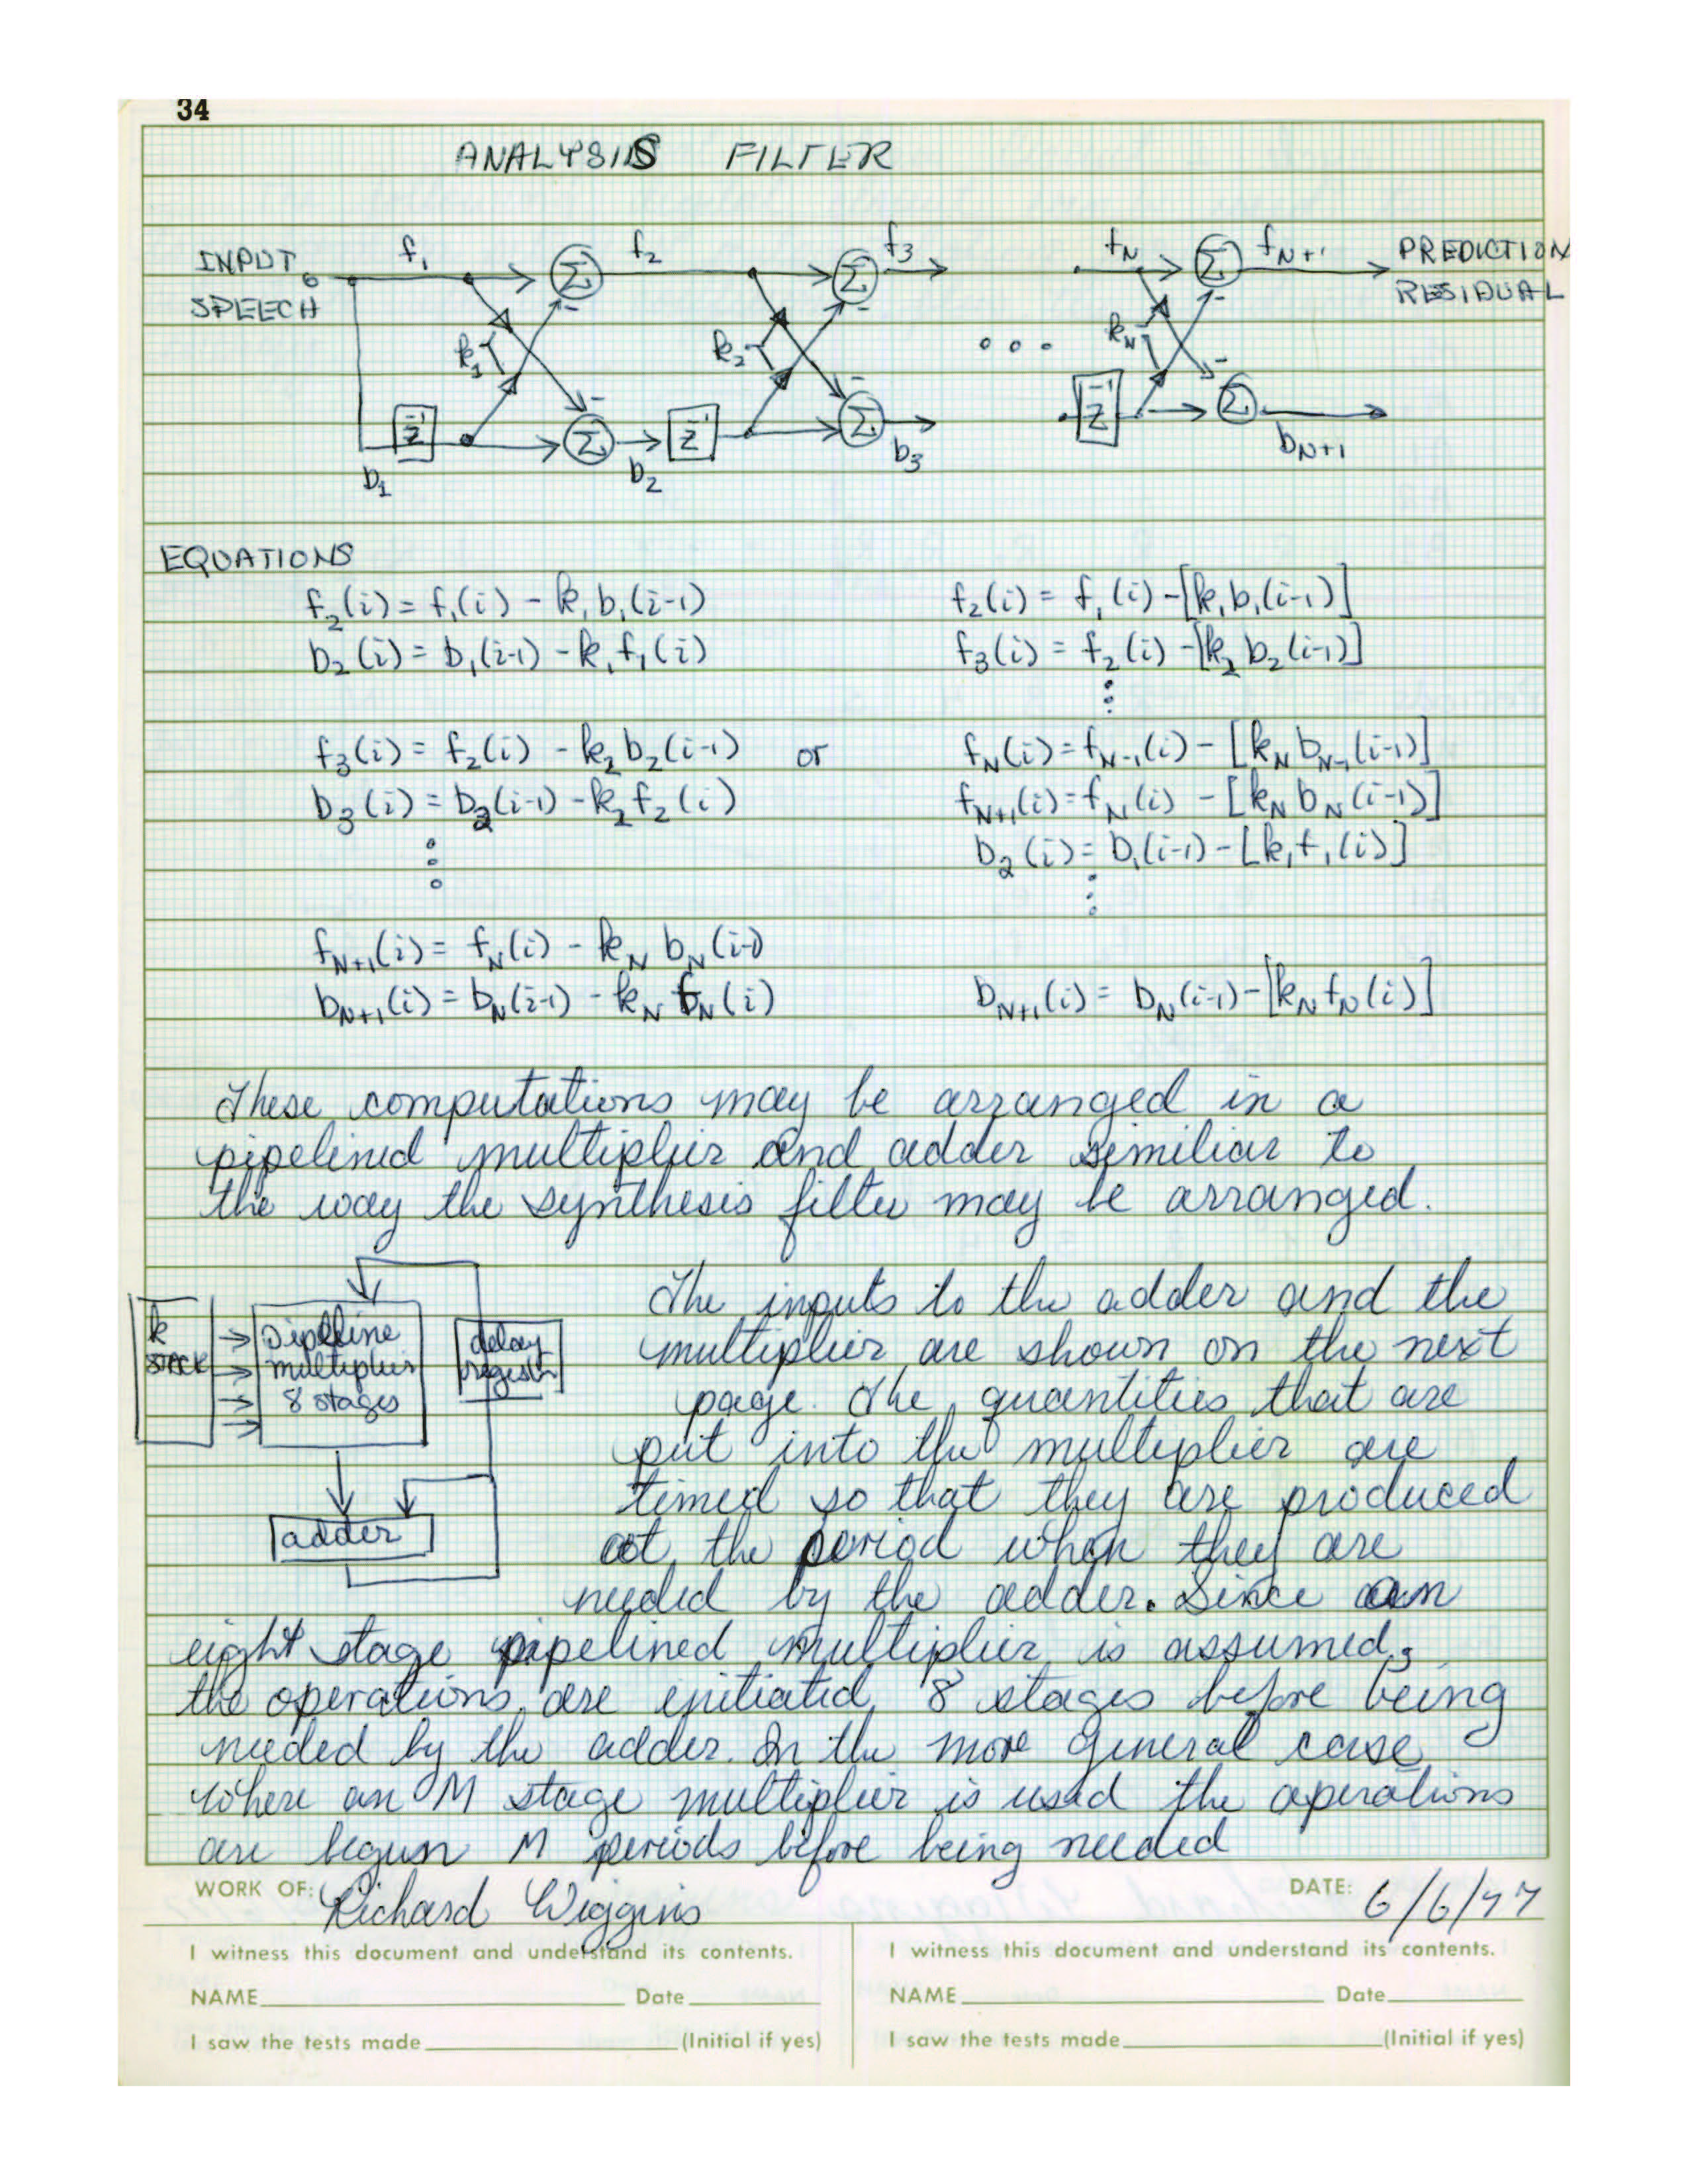 34
ANALYSIS FILTER
INPUT SPEECH
f₁
f₂
f₃
f_N
f_N+1
PREDICTION RESIDUAL
Σ
Σ
Σ
-
-
-
k₁
k₂
k_N
-
-
-
z⁻¹
Σ
z⁻¹
Σ
z⁻¹
Σ
b₁
b₂
b₃
b_N+1
EQUATIONS
f₂(i) = f₁(i) - k₁b₁(i-1)
b₂(i) = b₁(i-1) - k₁f₁(i)
f₃(i) = f₂(i) - k₂b₂(i-1)
b₃(i) = b₂(i-1) - k₂f₂(i)
f_N+1(i) = f_N(i) - k_N b_N(i-1)
b_N+1(i) = b_N(i-1) - k_N f_N(i)
or
f₂(i) = f₁(i) - [k₁b₁(i-1)]
f₃(i) = f₂(i) - [k₂b₂(i-1)]
f_N(i) = f_N-1(i) - [k_N b_N-1(i-1)]
f_N+1(i) = f_N(i) - [k_N b_N(i-1)]
b₂(i) = b₁(i-1) - [k₁f₁(i)]
b_N+1(i) = b_N(i-1) - [k_N f_N(i)]
These computations may be arranged in a
pipelined multiplier and adder similiar to
the way the synthesis filter may be arranged.
k
STACK
Pipeline
multiplier
8 stages
delay
register
adder
The inputs to the adder and the
multiplier are shown on the next
page. The quantities that are
put into the multiplier are
timed so that they are produced
at the period when they are
needed by the adder. Since an
eight stage pipelined multiplier is assumed,
the operations are initiated 8 stages before being
needed by the adder. In the more general case
where an M stage multiplier is used the operations
are begun M periods before being needed
WORK OF: Richard Wiggins DATE: 6/6/77
I witness this document and understand its contents.
NAME Date
I saw the tests made (Initial if yes)
I witness this document and understand its contents.
NAME Date
I saw the tests made (Initial if yes)